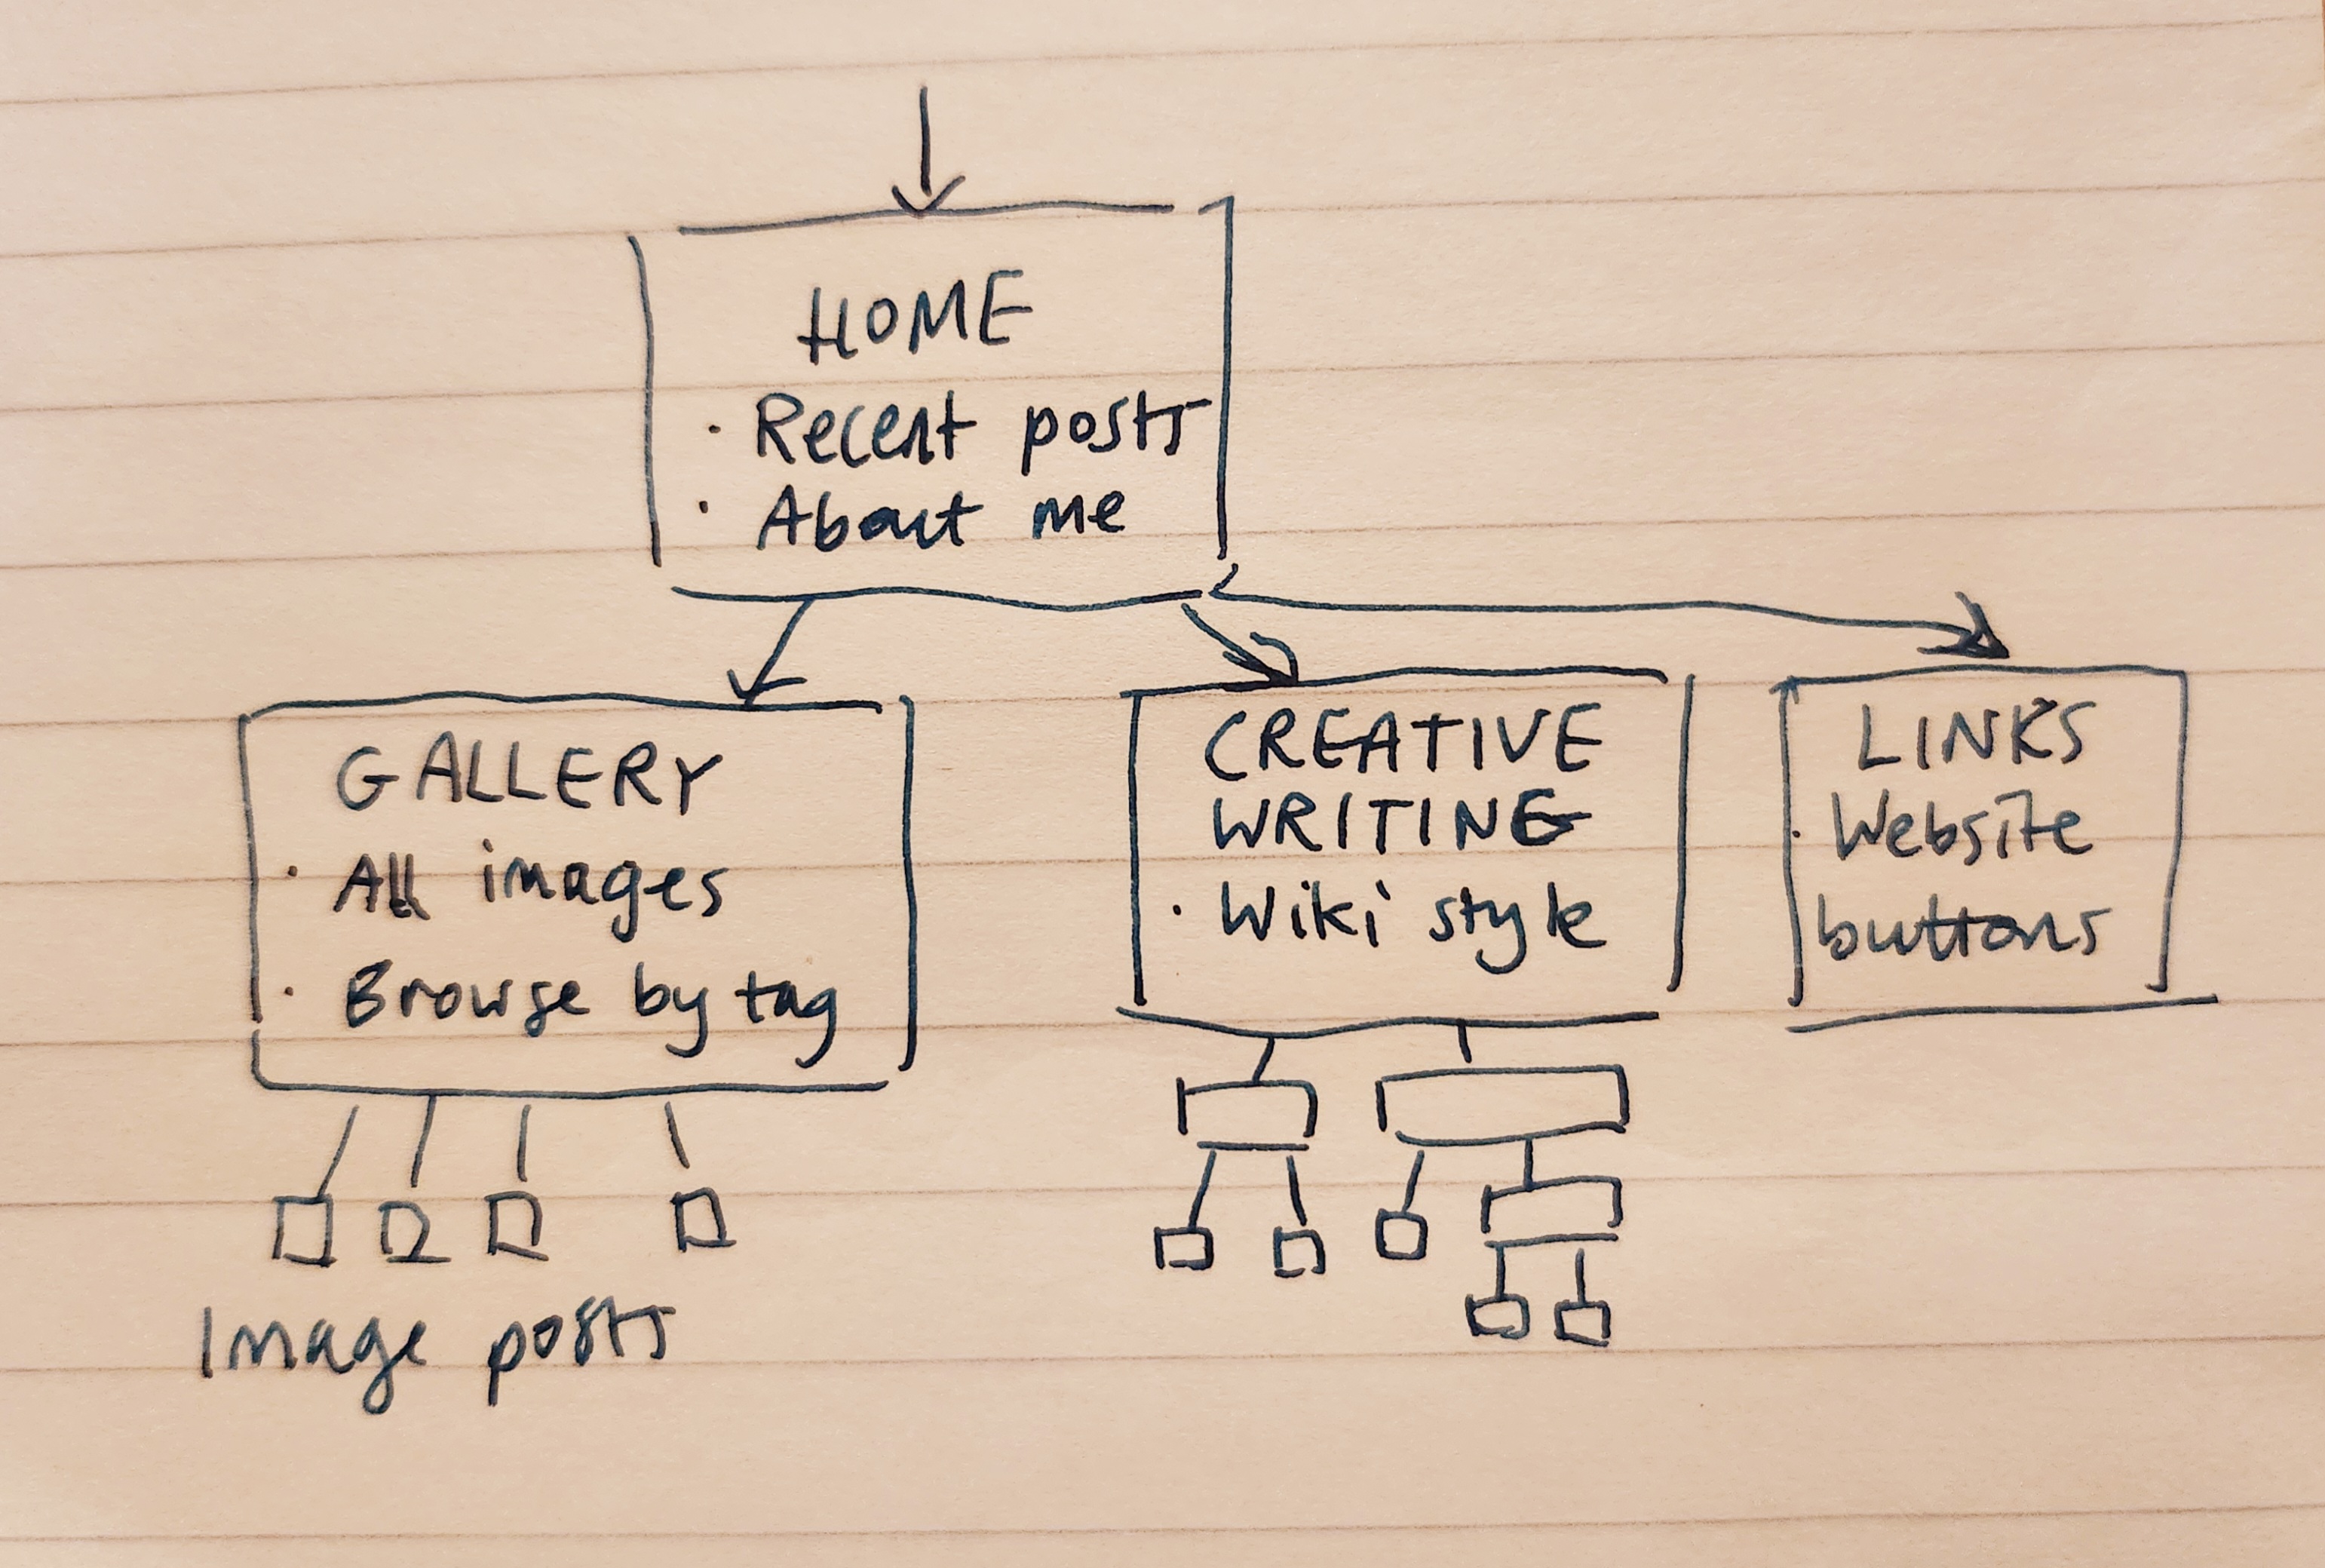 HOME
· Recent posts
· About me
GALLERY
· All images
· Browse by tag
Image posts
CREATIVE
WRITING
· Wiki style
LINKS
· Website
buttons